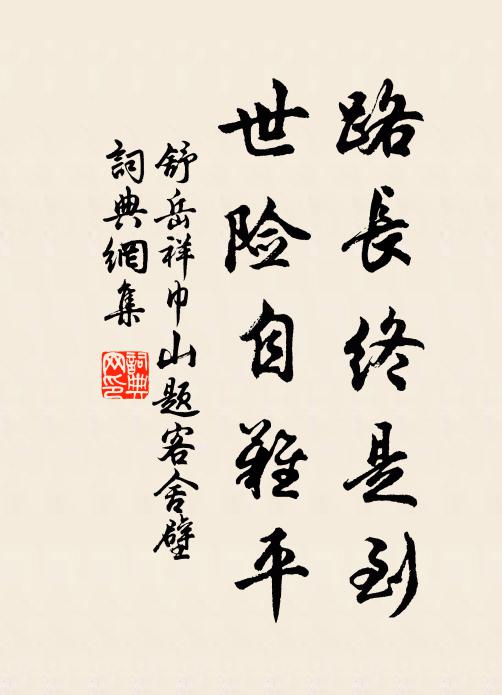 路長终是到
世险自難平
舒岳祥巾山题客舍壁
詞典網集
詞典网印